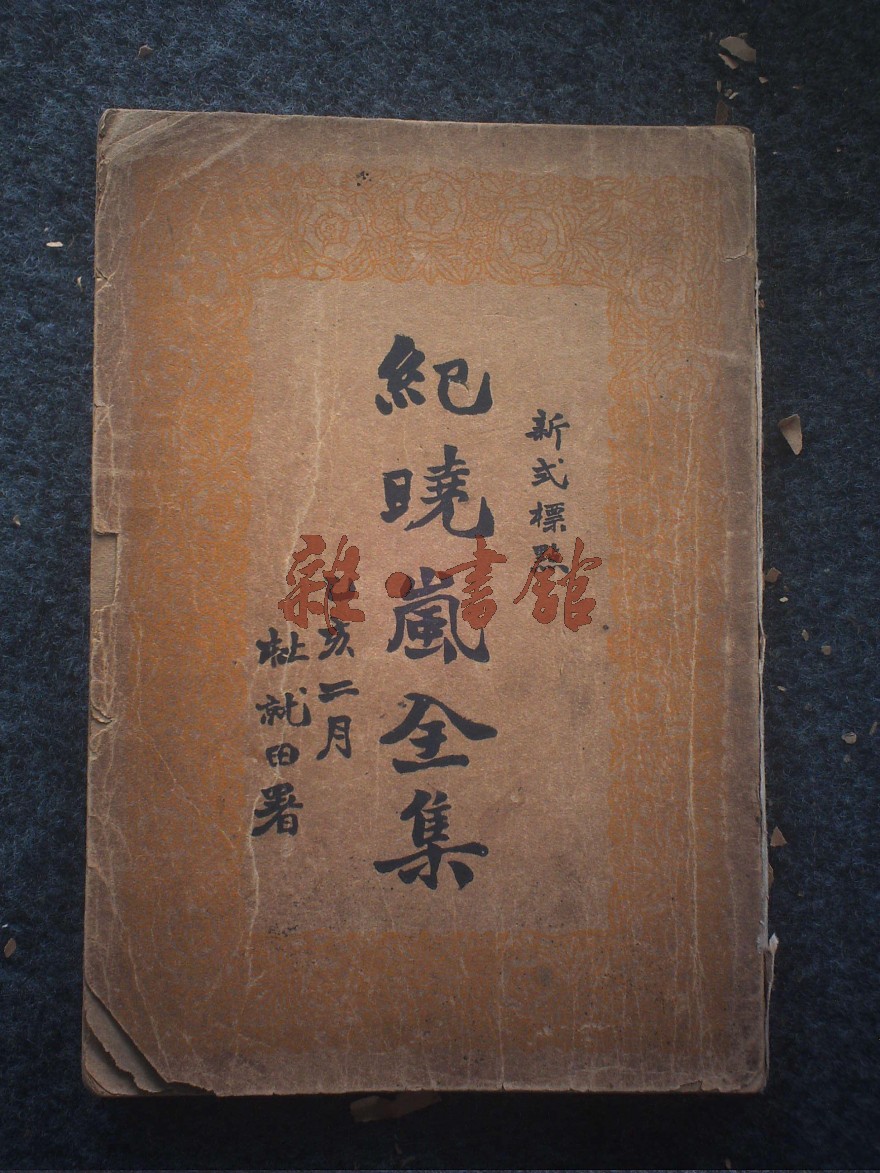 新式標點
紀曉嵐全集
乙亥二月
杜就田署
雜·書館